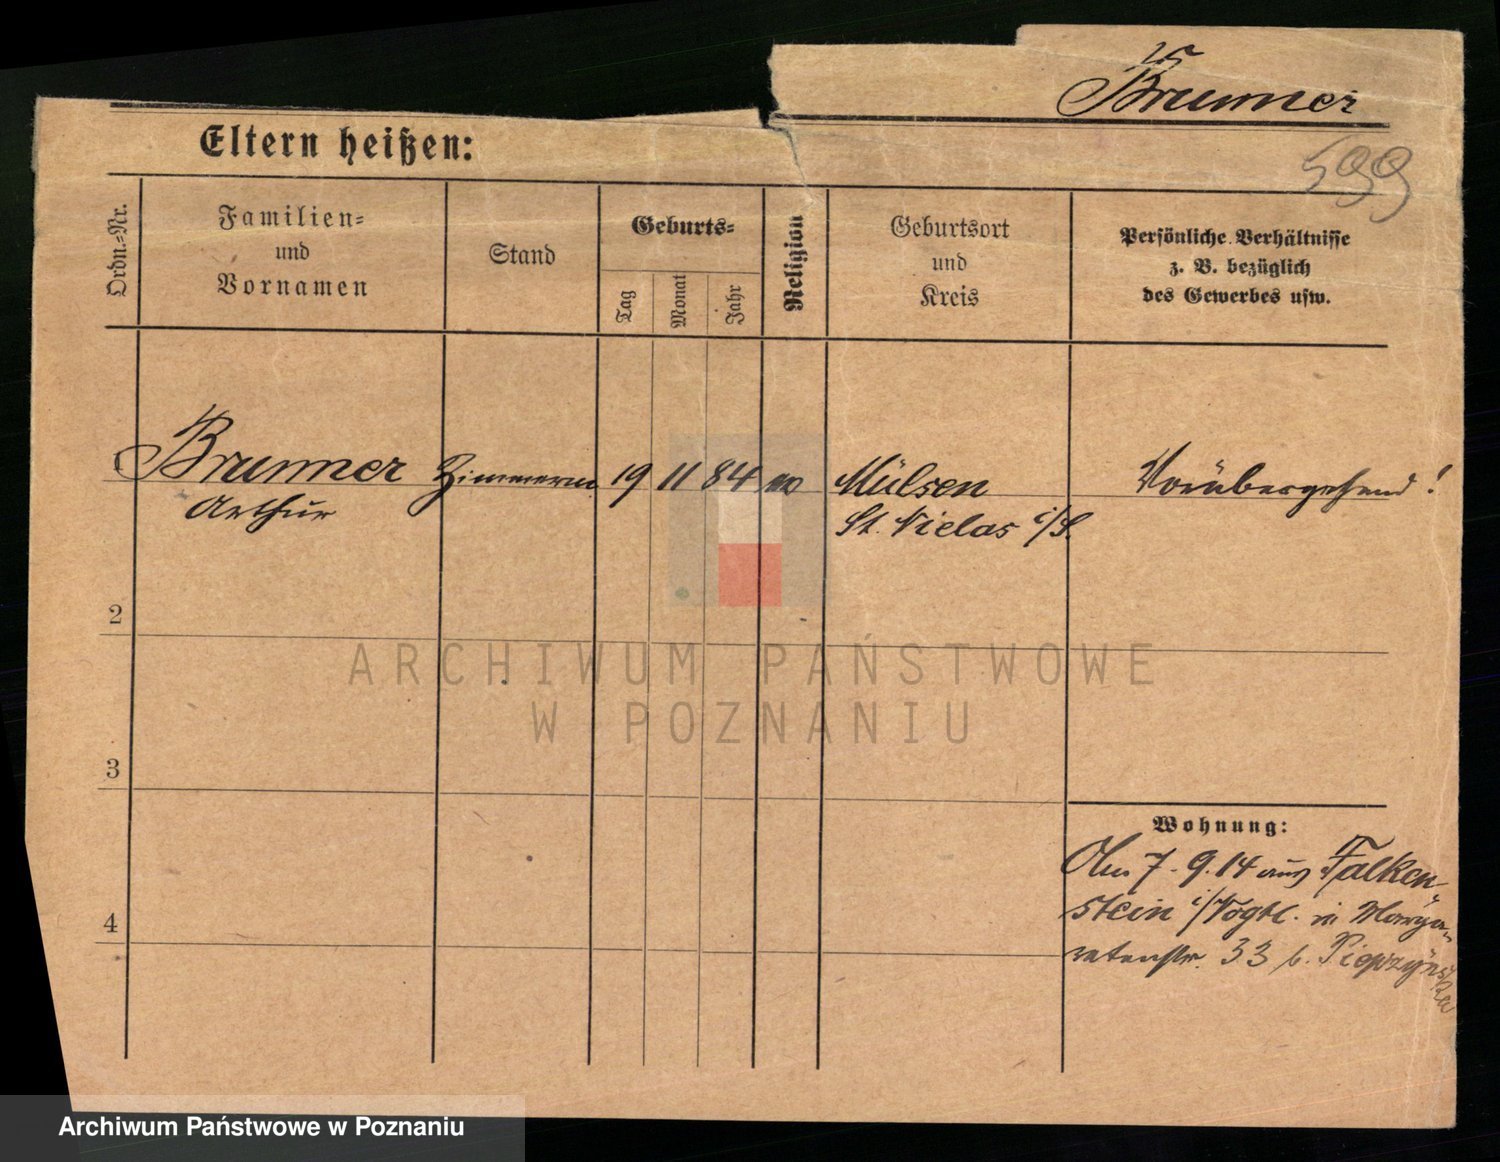 Brunner
599
Eltern heißen:
Ordn.=Nr.
Familien=
und
Vornamen
Stand
Geburts=
Tag
Monat
Jahr
Religion
Geburtsort
und
Kreis
Persönliche Verhältnisse
z. B. bezüglich
des Gewerbes usw.
Brunner
Arthur
Zimmerm
19
11
84
Mülsen
St. Niclas i/S.
Vorübergehend!
2
3
4
ARCHIWUM PAŃSTWOWE
W POZNANIU
Wohnung:
7.9.14 aus Falken-
stein i/Vogtl. in Marga-
retenstr. 33 b. Pieprzyńska
Archiwum Państwowe w Poznaniu